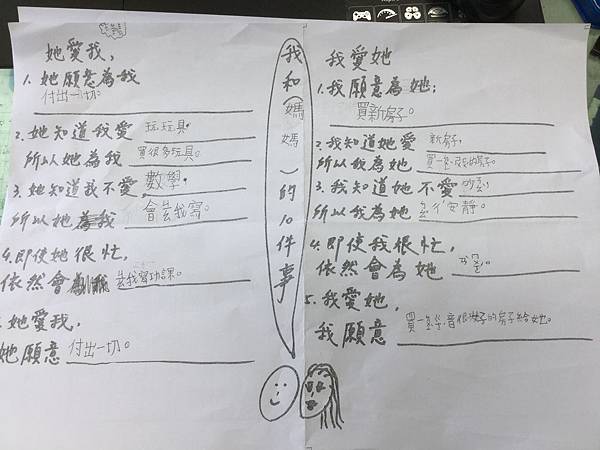 她愛我，
1. 她願意為我
付出一切。
2. 她知道我愛 玩玩具，
所以她為我 買很多玩具。
3. 她知道我不愛 數學，
所以她為我 會
4. 即使她很忙，
依然會 功課。
她愛我，
她願意 付出一切。
我和(媽媽)的10件事
我愛她
1. 我願意為她：
買新房子。
2. 我知道她愛 新房子，
所以我為她 買一
3. 我知道她不愛
所以我為她 安靜。
4. 即使我很忙，
依然會為她
5. 我愛她，
我願意 買一 的房子給她。